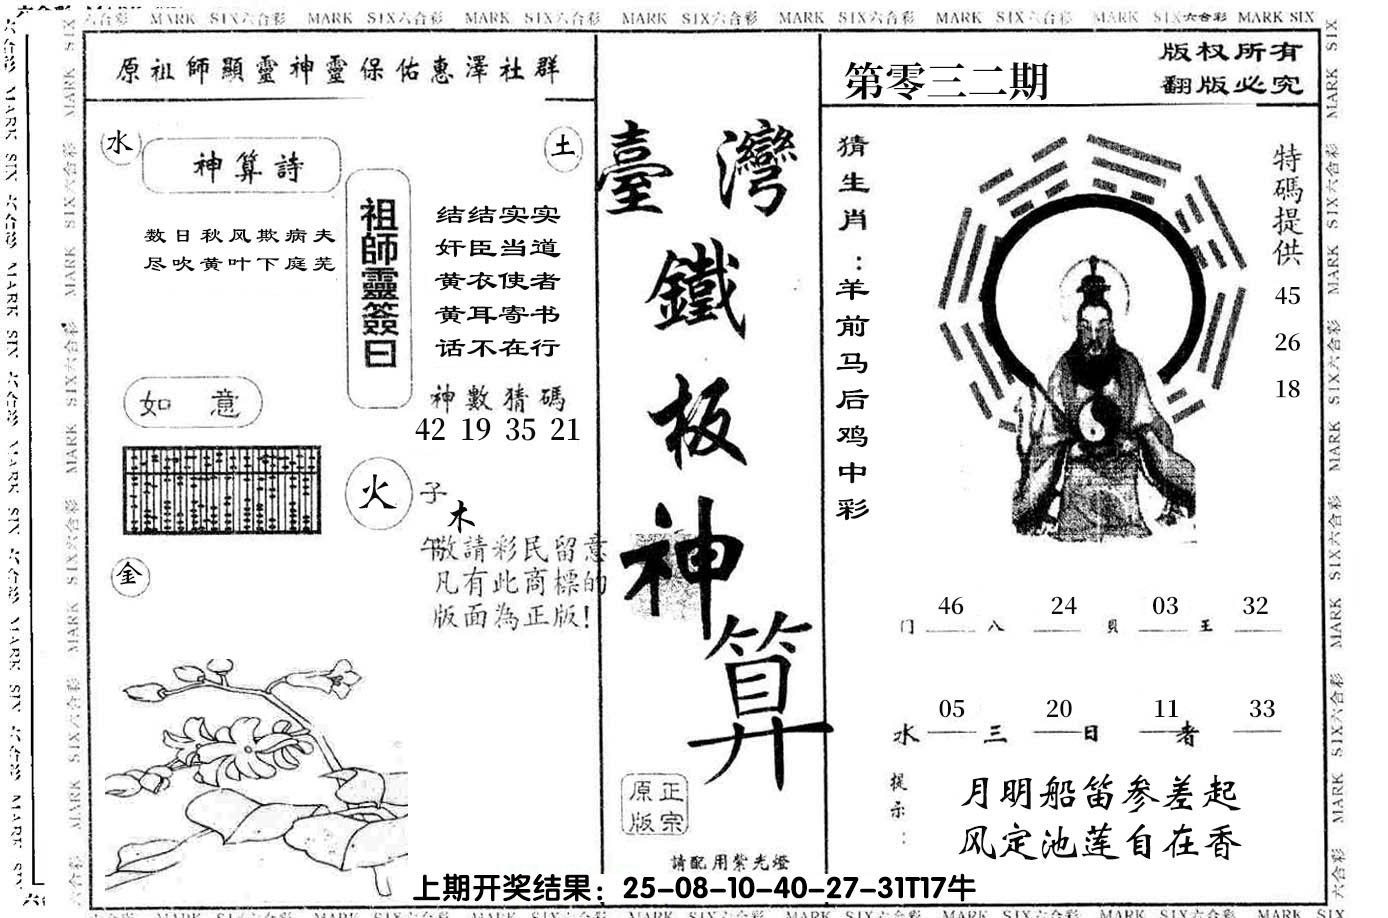 MARK SIX六合彩 MARK SIX六合彩 MARK SIX六合彩 MARK SIX六合彩 MARK SIX六合彩 MARK SIX六合彩 MARK SIX六合彩 MARK SIX
原祖師顯靈神靈保佑惠澤社群
水
神算詩
土
数日秋风欺病夫
尽吹黄叶下庭芜
祖師靈簽曰
结结实实
奸臣当道
黄衣使者
黄耳寄书
话不在行
神數猜碼
42 19 35 21
如 意
火
子
木
午
敬請彩民留意
凡有此商標的
版面為正版!
金
臺灣
鐵
板
神
算
正宗
原版
請配用紫光燈
第零三二期
版权所有
翻版必究
猜生肖:羊前马后鸡中彩
特碼提供
45
26
18
46 24 03 32
门 八 貝 王
05 20 11 33
水 三 日 者
提示:
月明船笛参差起
风定池莲自在香
上期开奖结果：25-08-10-40-27-31T17牛